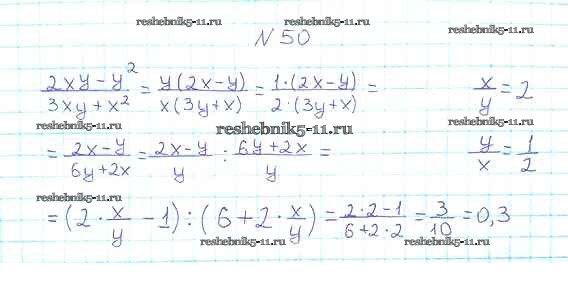 reshebnik5-11.ru reshebnik5-11.ru
N 50
(2xy - y²)/(3xy + x²) = y(2x-y)/x(3y+x) = 1·(2x-y)/2·(3y+x) = x/y = 2
reshebnik5-11.ru reshebnik5-11.ru reshebnik5-11.ru
= (2x-y)/(6y+2x) = (2x-y)/y : (6y+2x)/y = y/x = 1/2
reshebnik5-11.ru
= (2 · x/y - 1) : (6 + 2 · x/y) = (2·2-1)/(6+2·2) = 3/10 = 0,3
reshebnik5-11.ru reshebnik5-11.ru